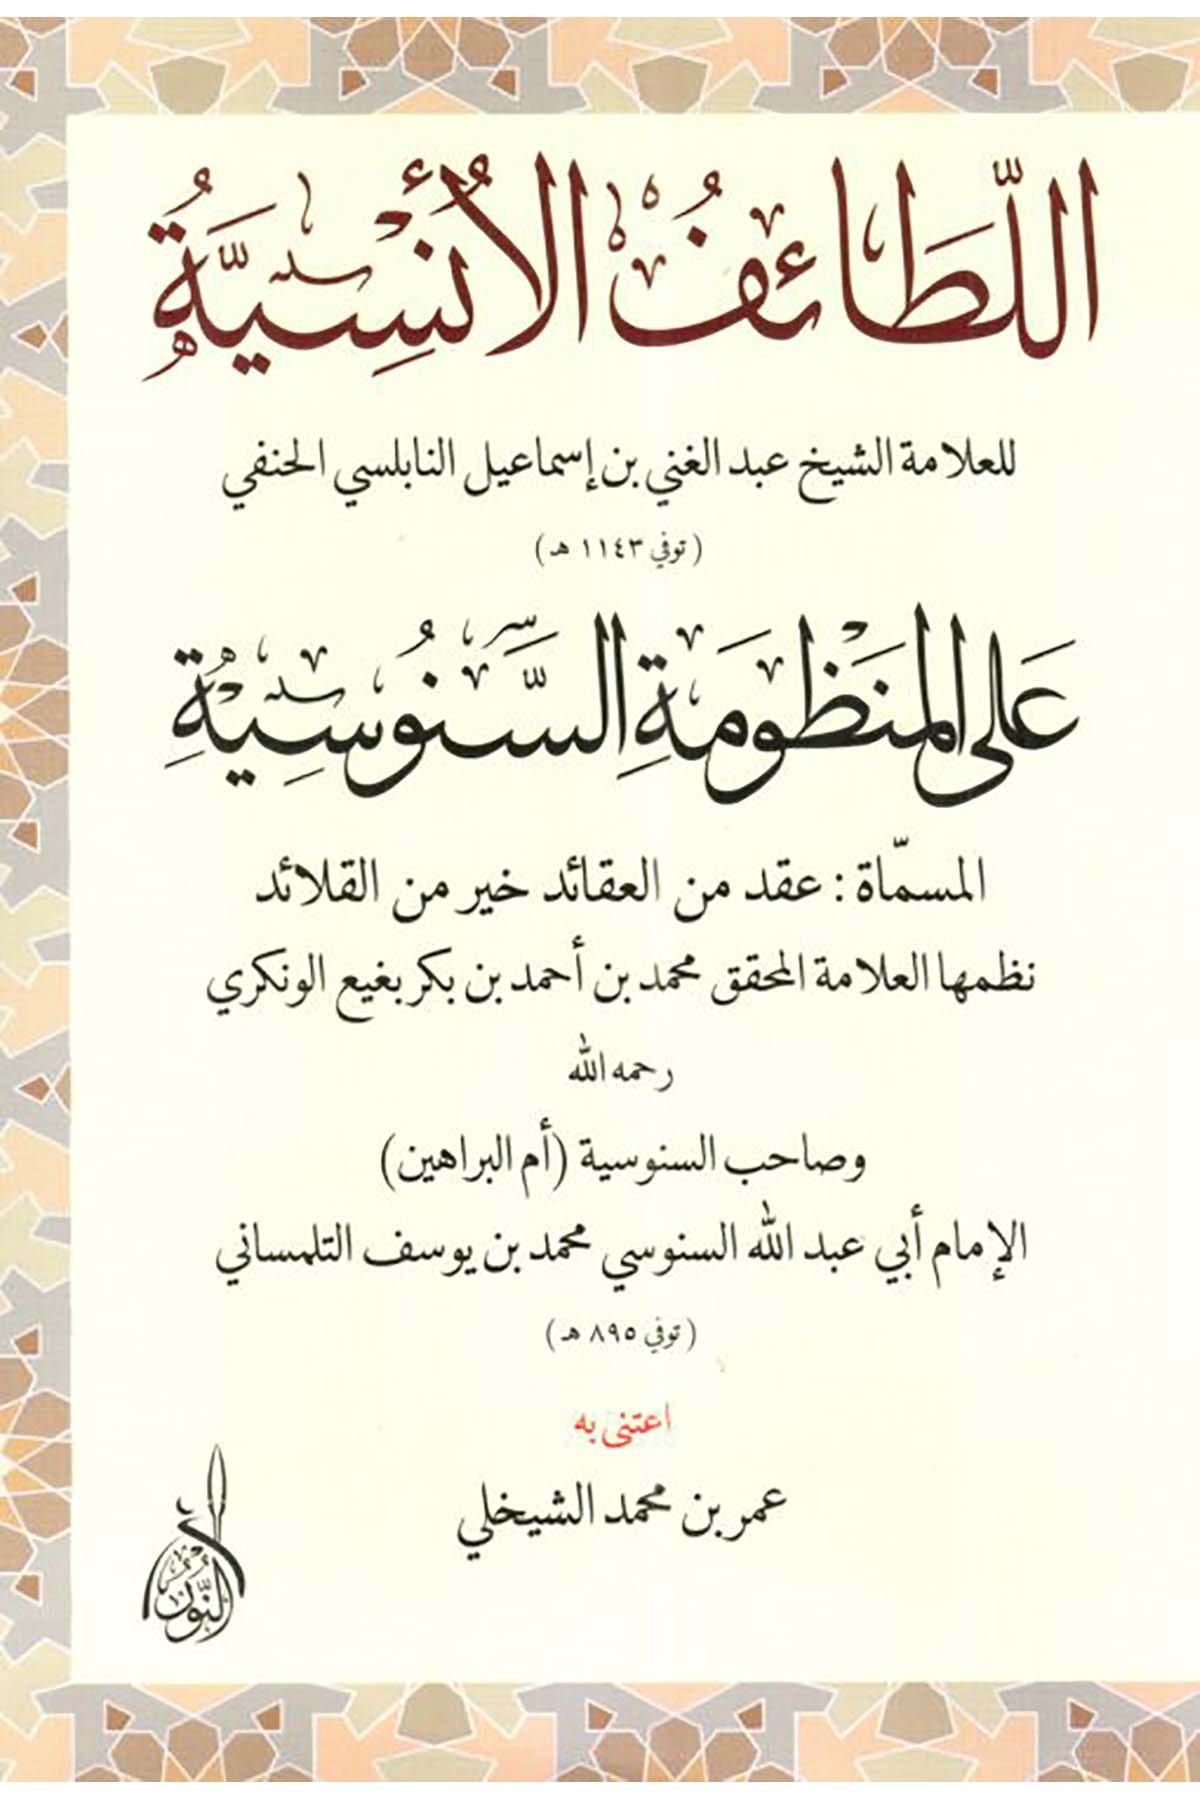 اللَّطَائِفُ الأُنْسِيَّةُ
للعلامة الشيخ عبد الغني بن إسماعيل النابلسي الحنفي
(توفي ١١٤٣ هـ)
عَلَى المَنْظُومَةِ السَّنُوسِيَّةِ
المسمّاة : عقد من العقائد خير من القلائد
نظمها العلامة المحقق محمد بن أحمد بن بكر بغيع الونكري
رحمه الله
وصاحب السنوسية (أم البراهين)
الإمام أبي عبد الله السنوسي محمد بن يوسف التلمساني
(توفي ٨٩٥ هـ)
اعتنى به
عمر بن محمد الشيخلي
النُّور